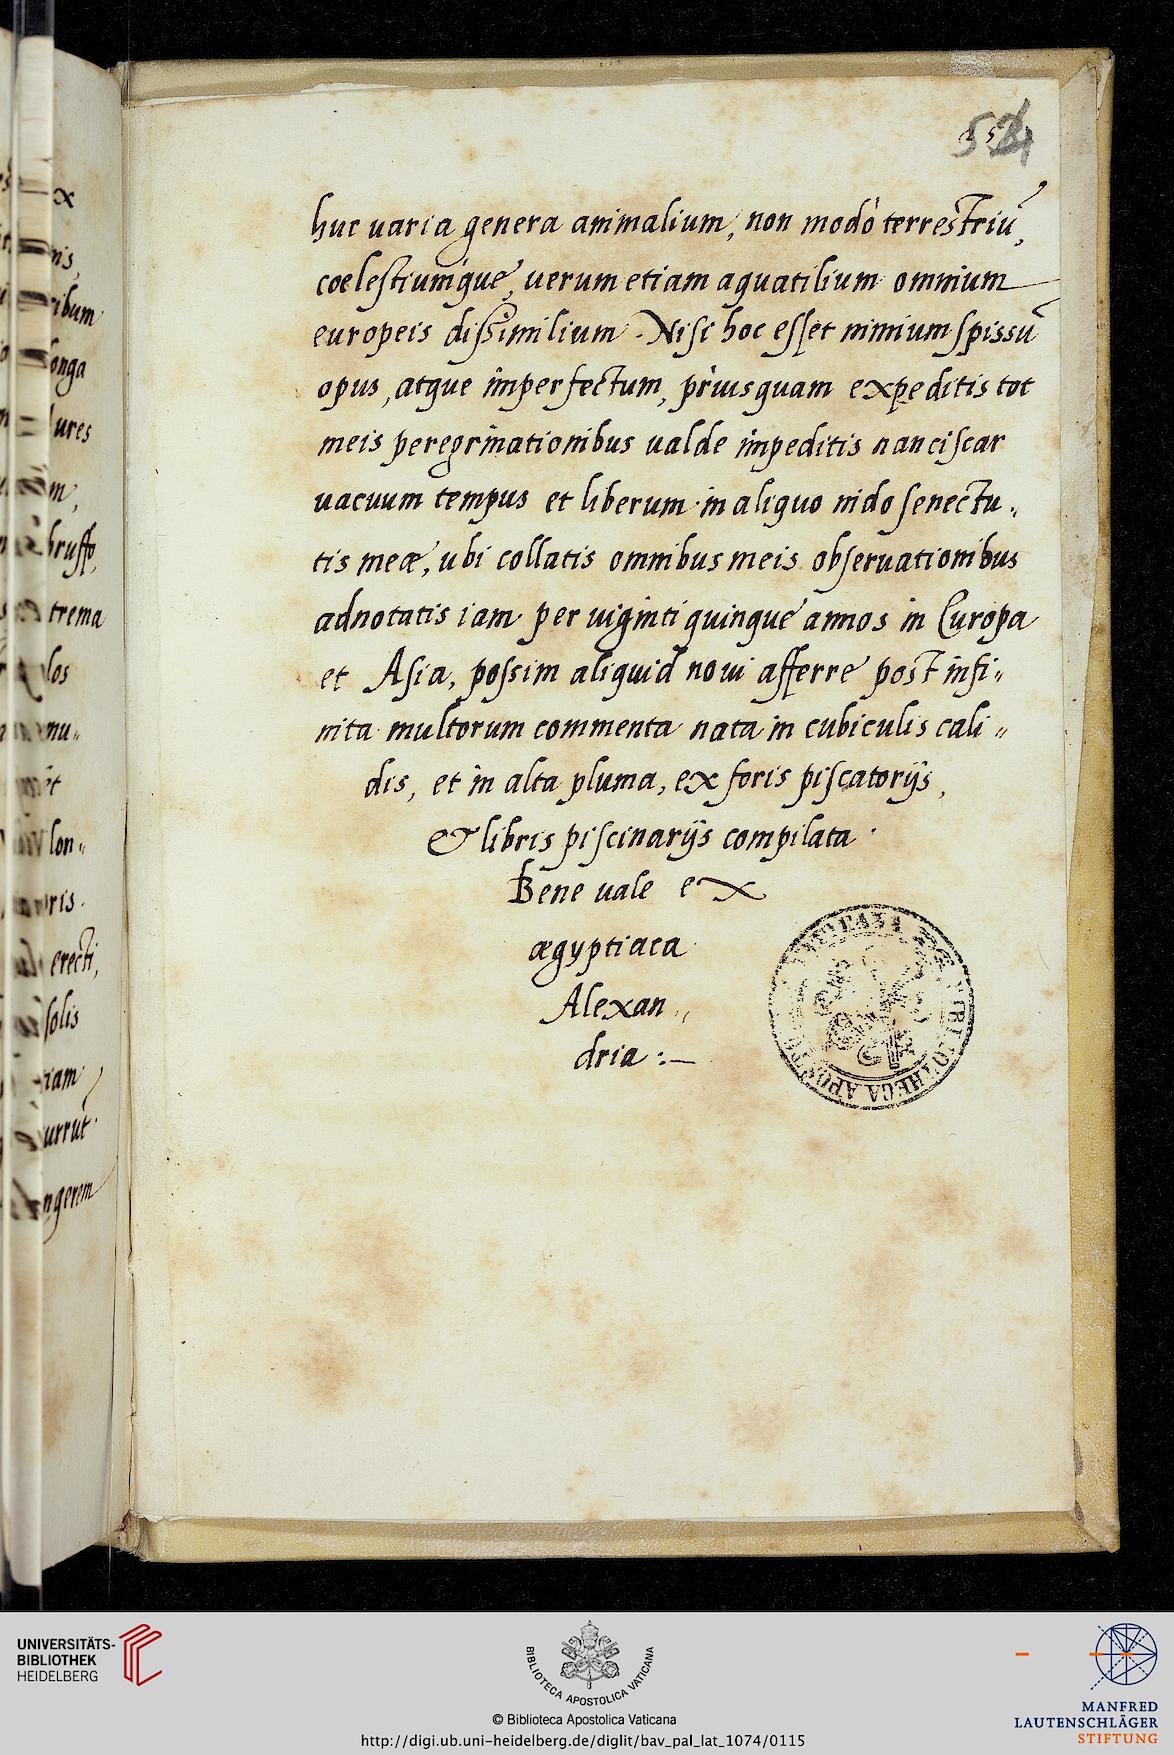 52
huc uaria genera animalium, non modò terrestriũ,
coelestiumque, uerum etiam aquatilium omnium
europeis dissimilium. Nisi hoc esset nimium spissũ
opus, atque imperfectum, priusquam expeditis tot
meis peregrinationibus ualde impeditis nanciscar
uacuum tempus et liberum in aliquo nido senectu„
tis meæ, ubi collatis omnibus meis obseruationibus
adnotatis iam per uiginti quinque annos in Europa
et Asia, possim aliquid noui afferre post infi„
nita multorum commenta nata in cubiculis cali„
dis, et in alta pluma, ex foris piscatorijs,
& libris piscinarijs compilata.
Bene uale ex
ægyptiaca
Alexan„
dria :—
ris
ribum
longa
ures
m,
trema
los
mu„
lon„
ris.
erecti,
solis
iam
urrũt
ngerem
UNIVERSITÄTS-
BIBLIOTHEK
HEIDELBERG
BIBLIOTECA APOSTOLICA VATICANA
© Biblioteca Apostolica Vaticana
http://digi.ub.uni-heidelberg.de/diglit/bav_pal_lat_1074/0115
MANFRED
LAUTENSCHLÄGER
STIFTUNG